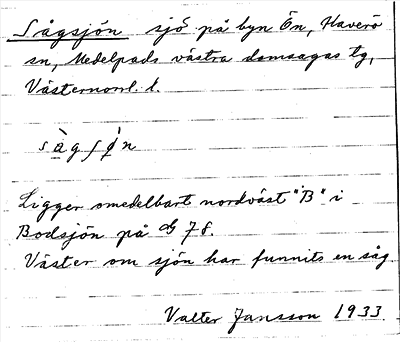 Sågsjön sjö på byn Ön, Haverö
sn, Medelpads västra domsagas tg,
Västernorrl. l.
så̀gʃø̀n
Ligger omedelbart nordväst "B" i
Bodsjön på 78.
Väster om sjön har funnits en såg.
Valter Jansson 1933.